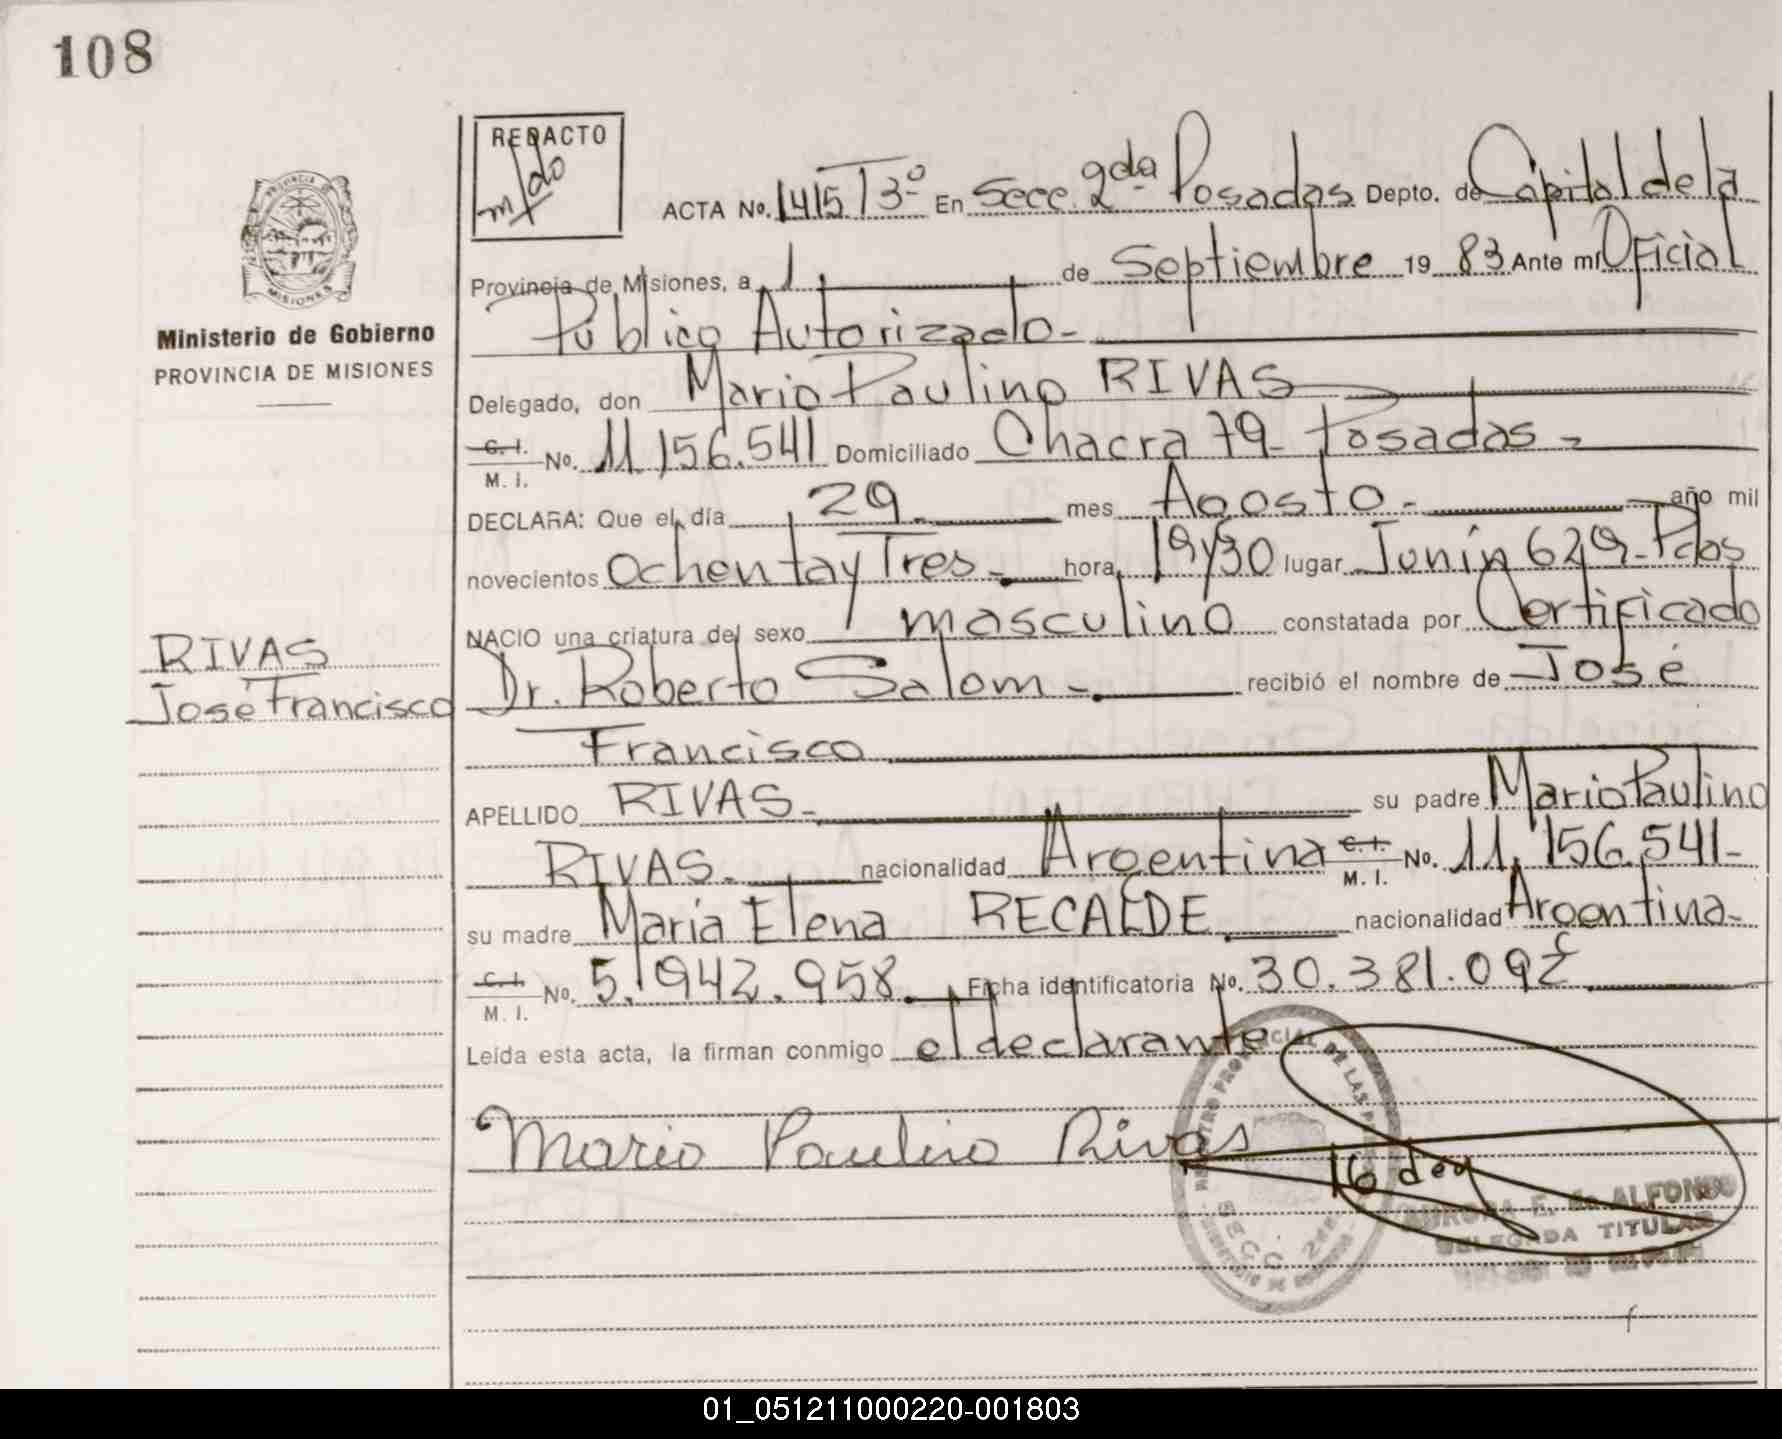 108
REDACTO
m/do
ACTA No. 1415 T3º En Secc. 2da Posadas Depto. de Capital de la
Provincia de Misiones, a 1 de Septiembre 19 83 Ante mí Oficial
Público Autorizado-
Ministerio de Gobierno
PROVINCIA DE MISIONES
Delegado, don Mario Paulino RIVAS
C. I.
M. I. No. 11.156.541 Domiciliado Chacra 79- Posadas-
DECLARA: Que el día 29.- mes Agosto.- año mil
novecientos Ochenta y Tres.- hora 19y30 lugar Junín 629- Pdas
NACIO una criatura del sexo masculino constatada por Certificado
Dr. Roberto Salom-. recibió el nombre de José
Francisco
RIVAS
José Francisco
APELLIDO RIVAS- su padre Mario Paulino
RIVAS.- nacionalidad Argentina C. I.
M. I. No. 11.156.541-
su madre María Elena RECALDE.- nacionalidad Argentina-
C. I.
M. I. No. 5.942.958.- Ficha identificatoria No. 30.381.092
Leída esta acta, la firman conmigo el declarante
Mario Paulino Rivas
REGISTRO PROVINCIAL DE LAS
SECC. 2da
16 deg
AURORA E. de ALFONSO
DELEGADA TITULAR
01_051211000220-001803